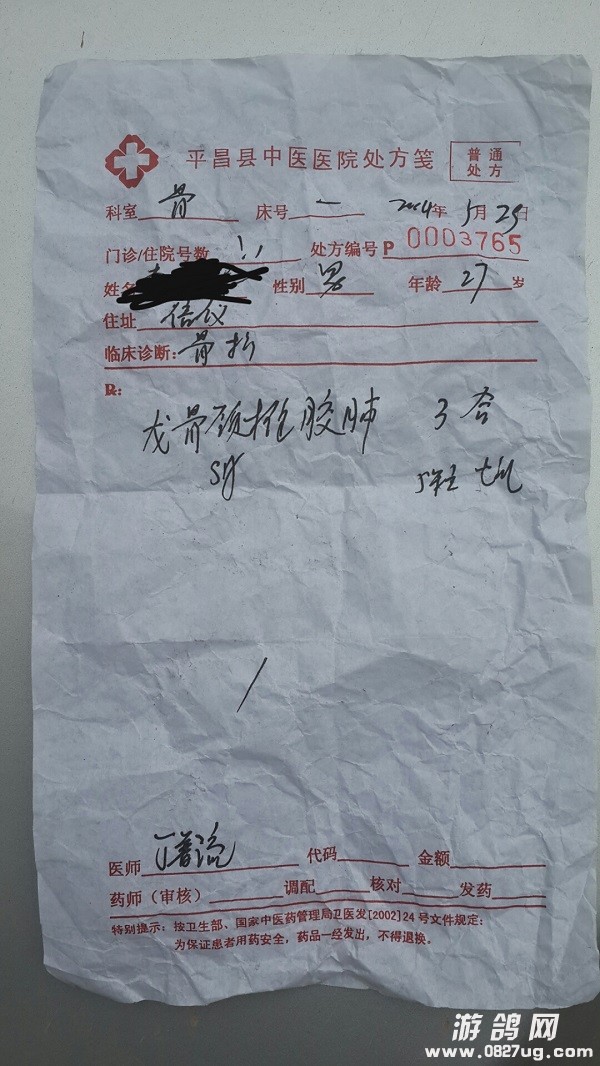 平昌县中医医院处方笺
普通处方
科室 骨 床号 一 2014年5月29日
门诊/住院号数 处方编号P 0003765
姓名 性别 男 年龄 27 岁
住址
临床诊断: 骨折
R:
龙骨颈椎胶 3合
医师 代码 金额
药师（审核） 调配 核对 发药
特别提示: 按卫生部、国家中医药管理局卫医发[2002]24号文件规定:
为保证患者用药安全，药品一经发出，不得退换。
游鸽网
www.0827ug.com